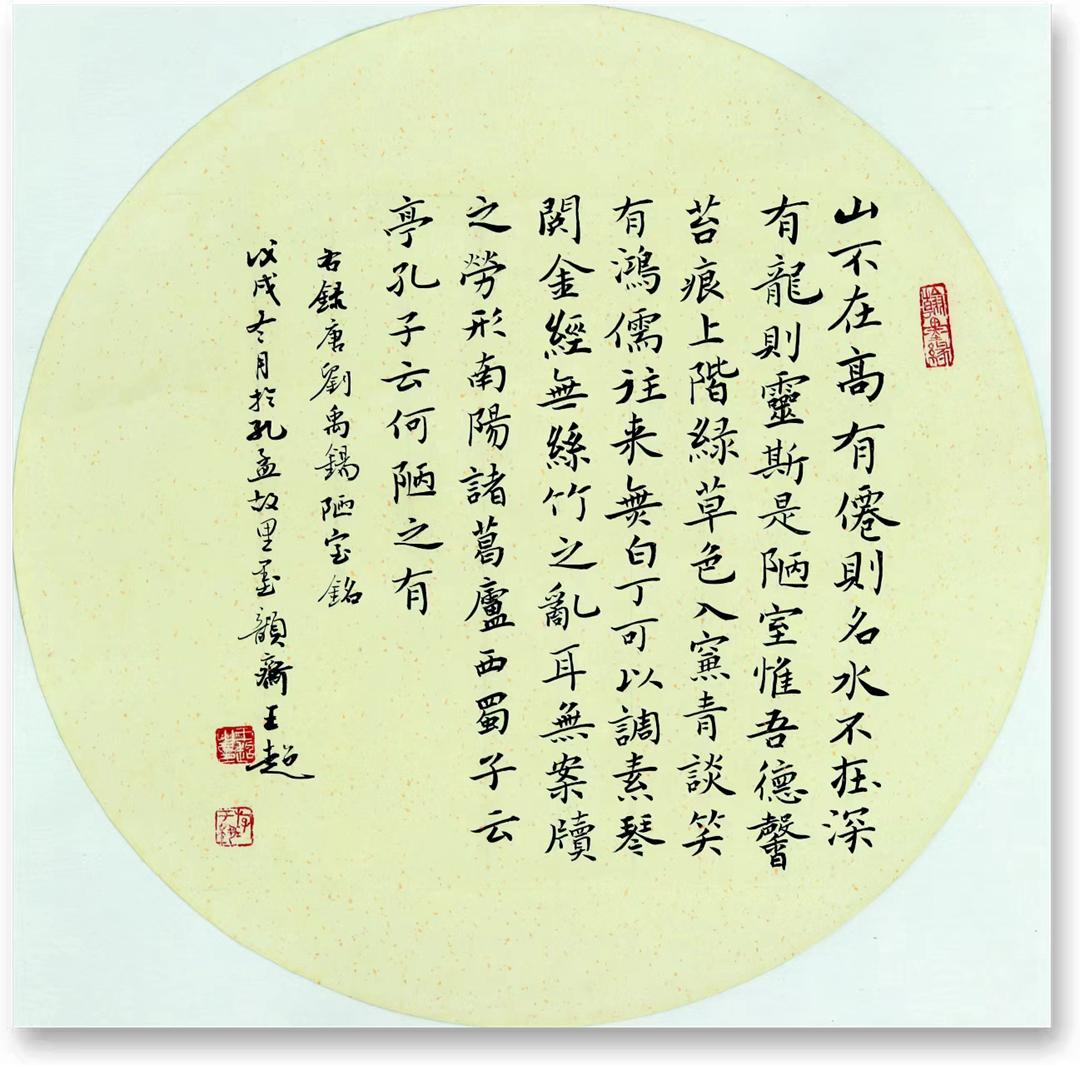 翰墨緣
山不在高有僊則名水不在深
有龍則靈斯是陋室惟吾德馨
苔痕上階緑草色入簾青談笑
有鴻儒往来無白丁可以調素琴
閱金經無絲竹之亂耳無案牘
之勞形南陽諸葛廬西蜀子云
亭孔子云何陋之有
右録唐劉禹錫陋室銘
戊戌冬月於孔孟故里墨韻齋王超